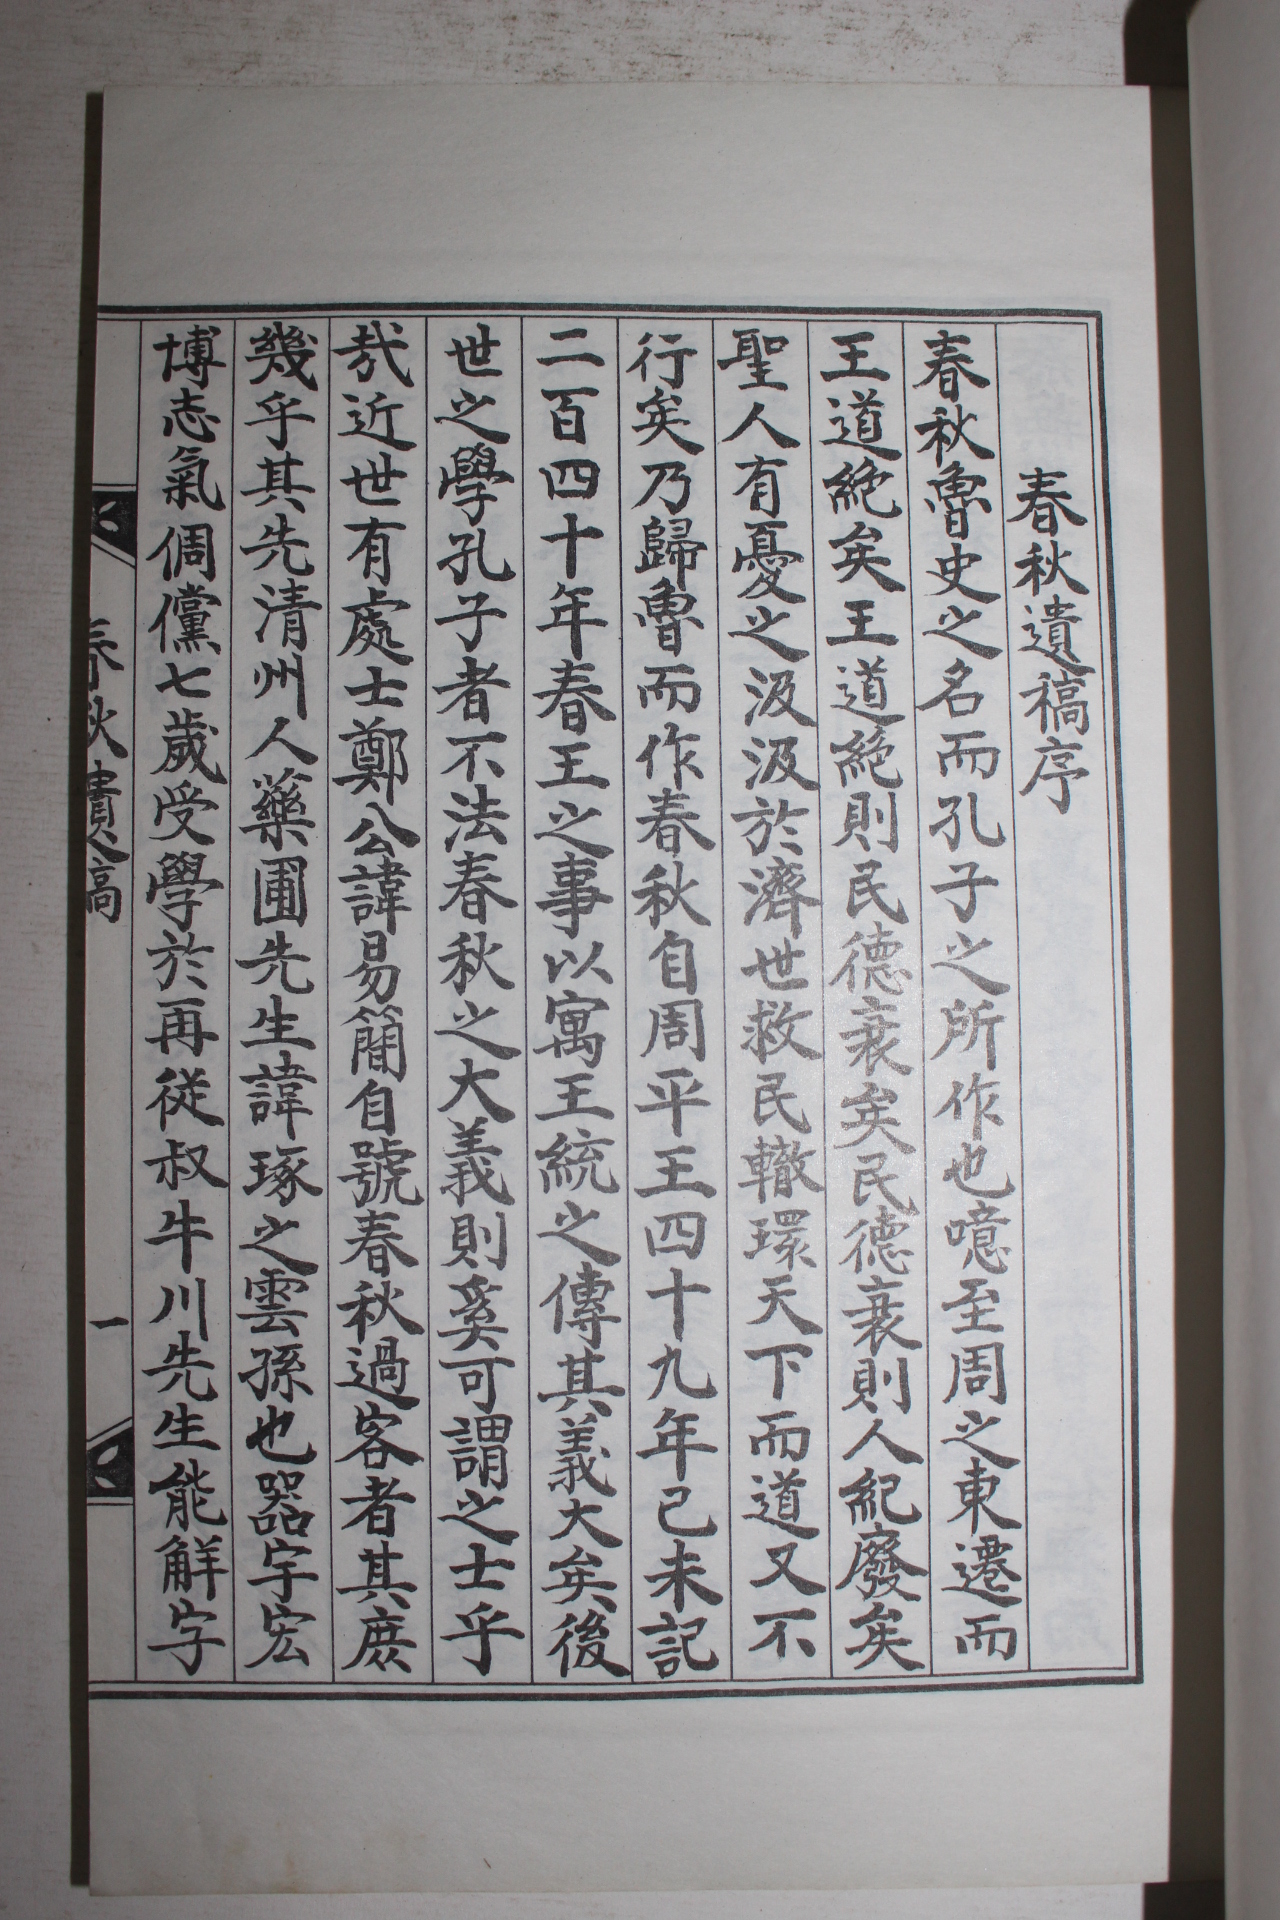 春秋遺稿序
春秋魯史之名而孔子之所作也噫至周之東遷而
王道絶矣王道絶則民德衰矣民德衰則人紀廢矣
聖人有憂之汲汲於濟世救民轍環天下而道又不
行矣乃歸魯而作春秋自周平王四十九年己未記
二百四十年春王之事以寓王統之傳其義大矣後
世之學孔子者不法春秋之大義則奚可謂之士乎
㦲近世有處士鄭公諱昜簡自號春秋過客者其庶
幾乎其先清州人藥圃先生諱琢之雲孫也器宇宏
博志氣倜儻七歲受學於再從叔牛川先生能解字
春秋遺稿
一